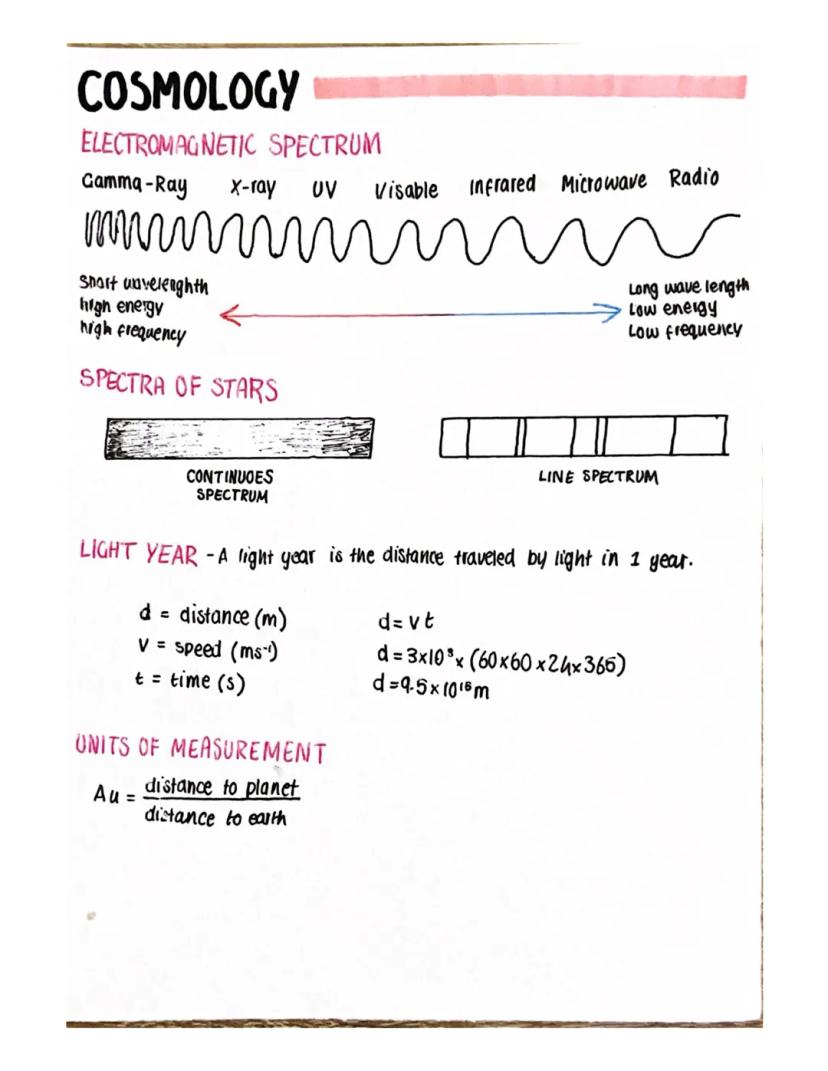 COSMOLOGY
ELECTROMAGNETIC SPECTRUM
Gamma-Ray X-ray UV Visable Infrared Microwave Radio
Short wavelenghth
high energy
high frequency
Long wave length
Low energy
Low frequency
SPECTRA OF STARS
CONTINUOES
SPECTRUM
LINE SPECTRUM
LIGHT YEAR - A light year is the distance traveled by light in 1 year.
d = distance (m)
v = speed (ms⁻¹)
t = time (s)
d = vt
d = 3×10⁸× (60×60×24×365)
d = 9.5×10¹⁵m
UNITS OF MEASUREMENT
Au = distance to planet
distance to earth